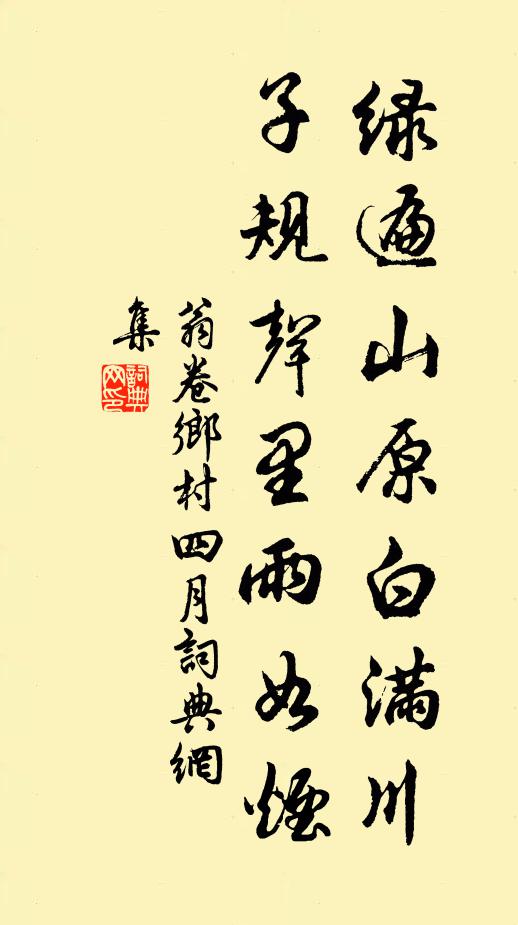 綠遍山原白滿川
子規聲里雨如煙
翁卷鄉村四月詞典網
集
詞典
网印